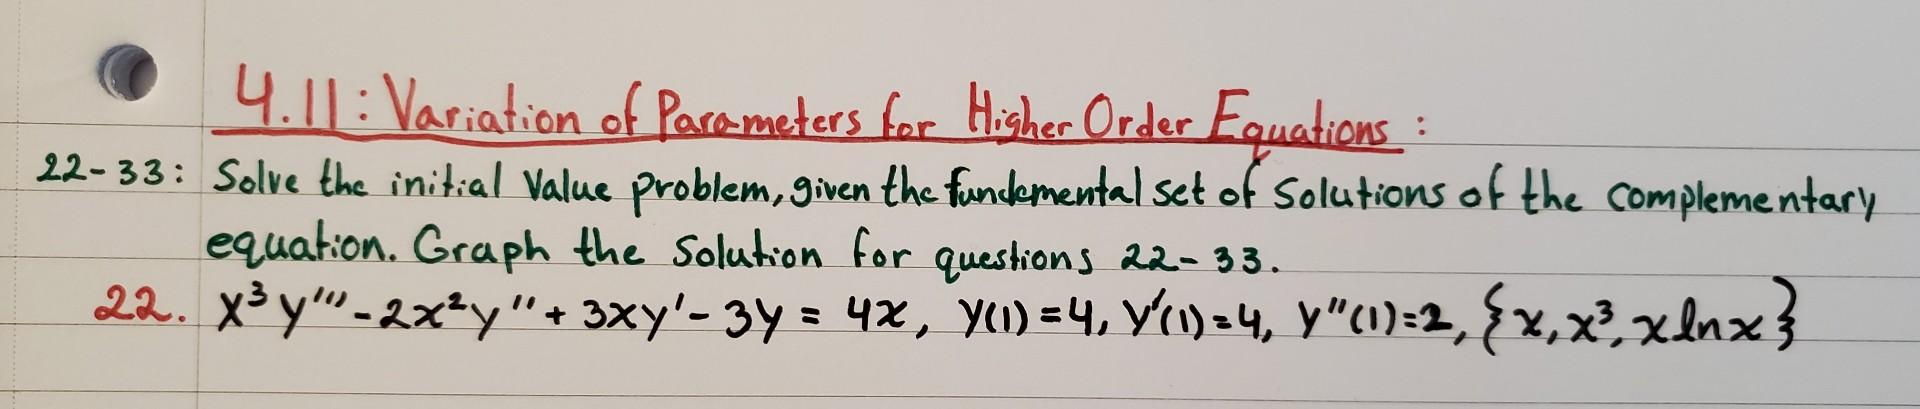 4.11: Variation of Parameters for Higher Order Equations:
22-33: Solve the initial Value problem, given the fundemental set of Solutions of the complementary
equation. Graph the Solution for questions 22-33.
22. x³y''' - 2x²y'' + 3xy' - 3y = 4x, y(1)=4, y'(1)=4, y''(1)=2, {x, x³, x ln x}